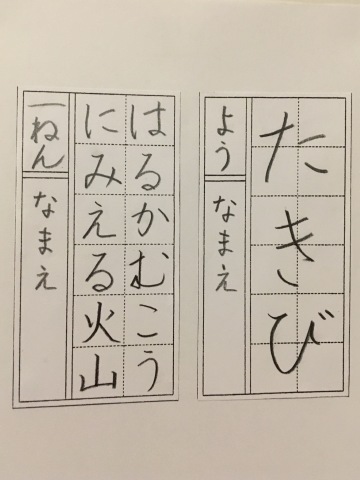 たきび
よう
なまえ
はるかむこう
にみえる火山
一ねん
なまえ